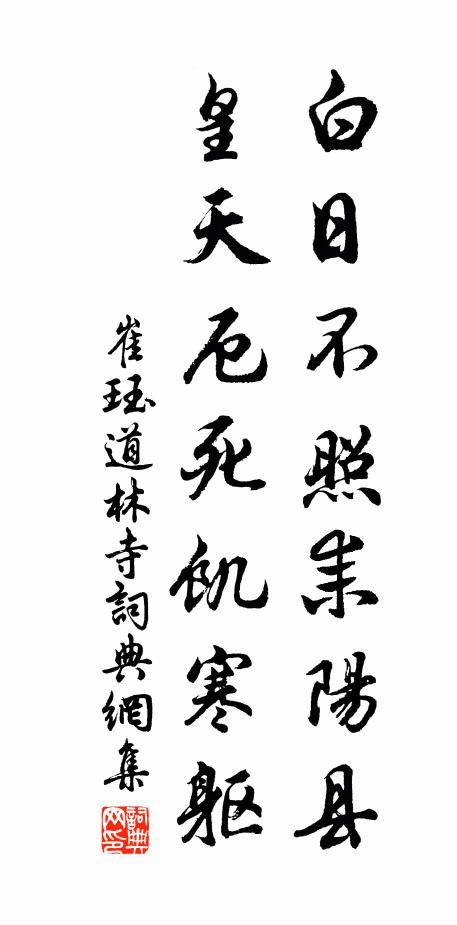 白日不照耒陽县
皇天厄死飢寒躯
崔珏道林寺詞典網集
詞典網印